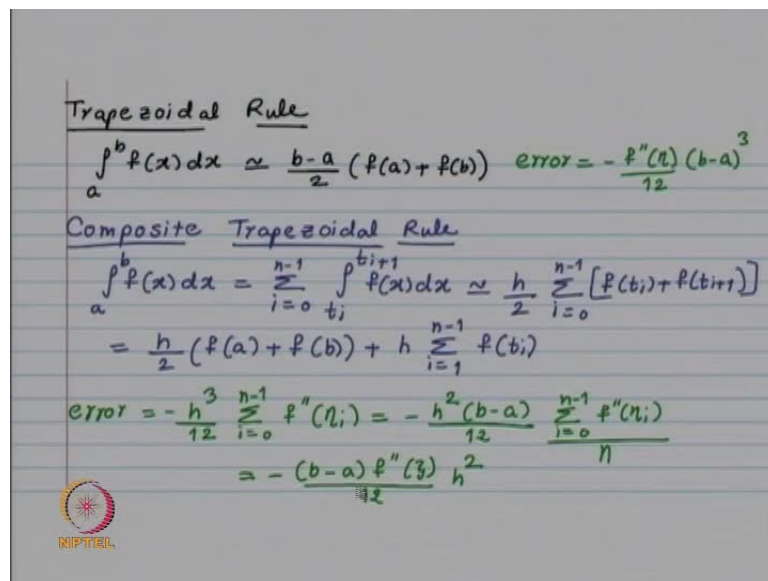 Trapezoidal Rule
∫_a^b f(x) dx ≃ (b-a)/2 (f(a) + f(b)) error = - f''(η)/12 (b-a)^3
Composite Trapezoidal Rule
∫_a^b f(x) dx = Σ_{i=0}^{n-1} ∫_{t_i}^{t_{i+1}} f(x) dx ≃ h/2 Σ_{i=0}^{n-1} [f(t_i) + f(t_{i+1})]
= h/2 (f(a) + f(b)) + h Σ_{i=1}^{n-1} f(t_i)
error = - h^3/12 Σ_{i=0}^{n-1} f''(η_i) = - h^2 (b-a)/12 Σ_{i=0}^{n-1} f''(η_i)/n
= - (b-a) f''(ξ)/12 h^2
NPTEL